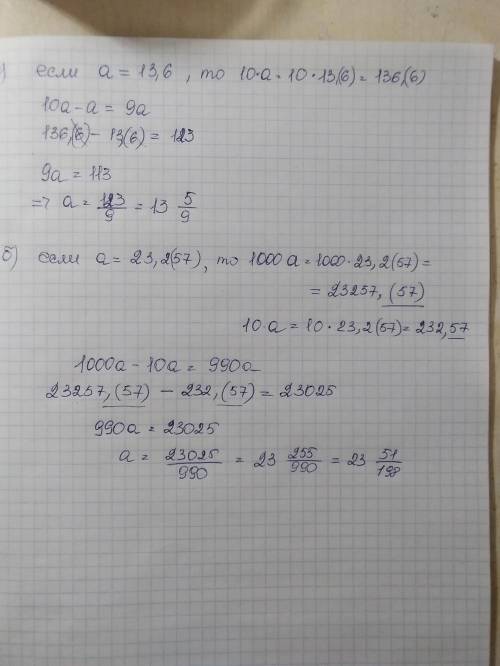 ) если a = 13,6 , то 10·a = 10·13,(6) = 136,(6)
10a - a = 9a
136,(6) - 13,(6) = 123
9a = 113
=> a = 123/9 = 13 5/9
б) если a = 23,2(57), то 1000a = 1000·23,2(57) =
= 23257,(57)
10·a = 10·23,2(57) = 232,57
1000a - 10a = 990a
23257,(57) - 232,(57) = 23025
990a = 23025
a = 23025/990 = 23 255/990 = 23 51/198